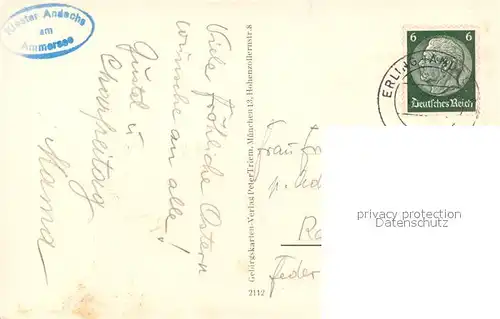 Kloster Andechs
am
Ammersee
Viele fröhliche Ostern
wünsche an alle!
Gustl u.
Mama
Gebirgskarten-Verlag Peter Triem, München 13, Hohenzollernstr. 8
2112
6 6
Deutsches Reich
ERLING-AN
Frau
p. Ad
Ra
Feder
privacy protection
Datenschutz